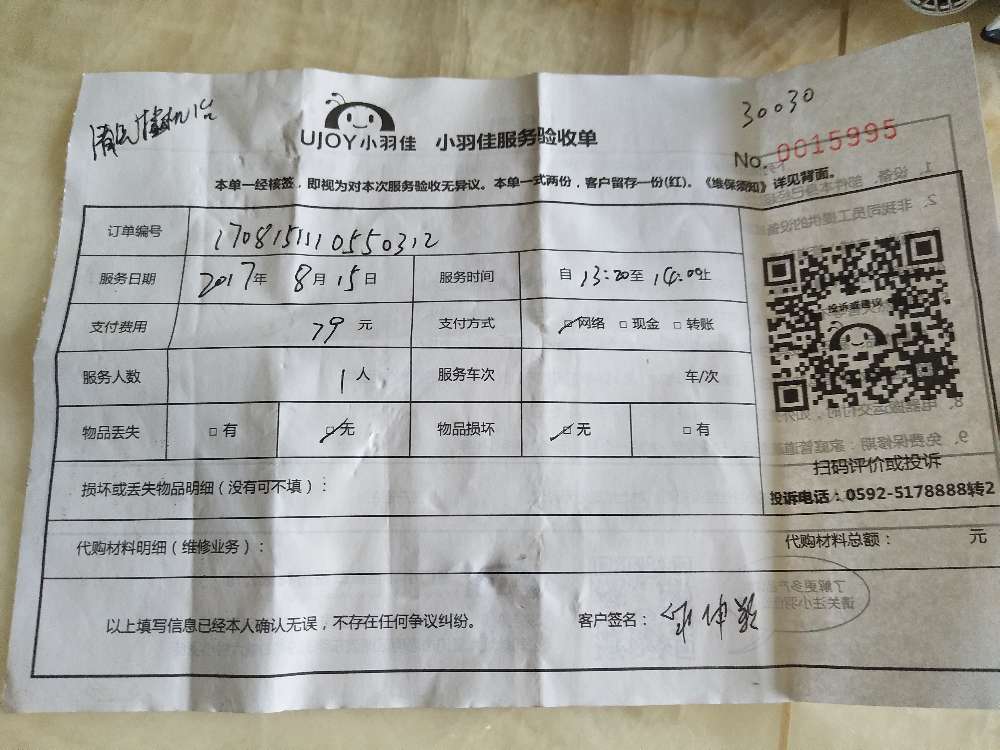 30030
UJOY小羽佳 小羽佳服务验收单
No. 0015995
本单一经核签，即视为对本次服务验收无异议。本单一式两份，客户留存一份(红)。《维保须知》详见背面。
订单编号 1708151110550312
服务日期 2017年 8月 15日 服务时间 自 13:20至 14:00止
支付费用 79 元 支付方式 ☑网络 □现金 □转账
服务人数 1人 服务车次 车/次
物品丢失 □有 ☑无 物品损坏 ☑无 □有
投诉或建议
扫码评价或投诉
投诉电话：0592-5178888转2
损坏或丢失物品明细（没有可不填）：
代购材料明细（维修业务）： 代购材料总额： 元
以上填写信息已经本人确认无误，不存在任何争议纠纷。 客户签名：